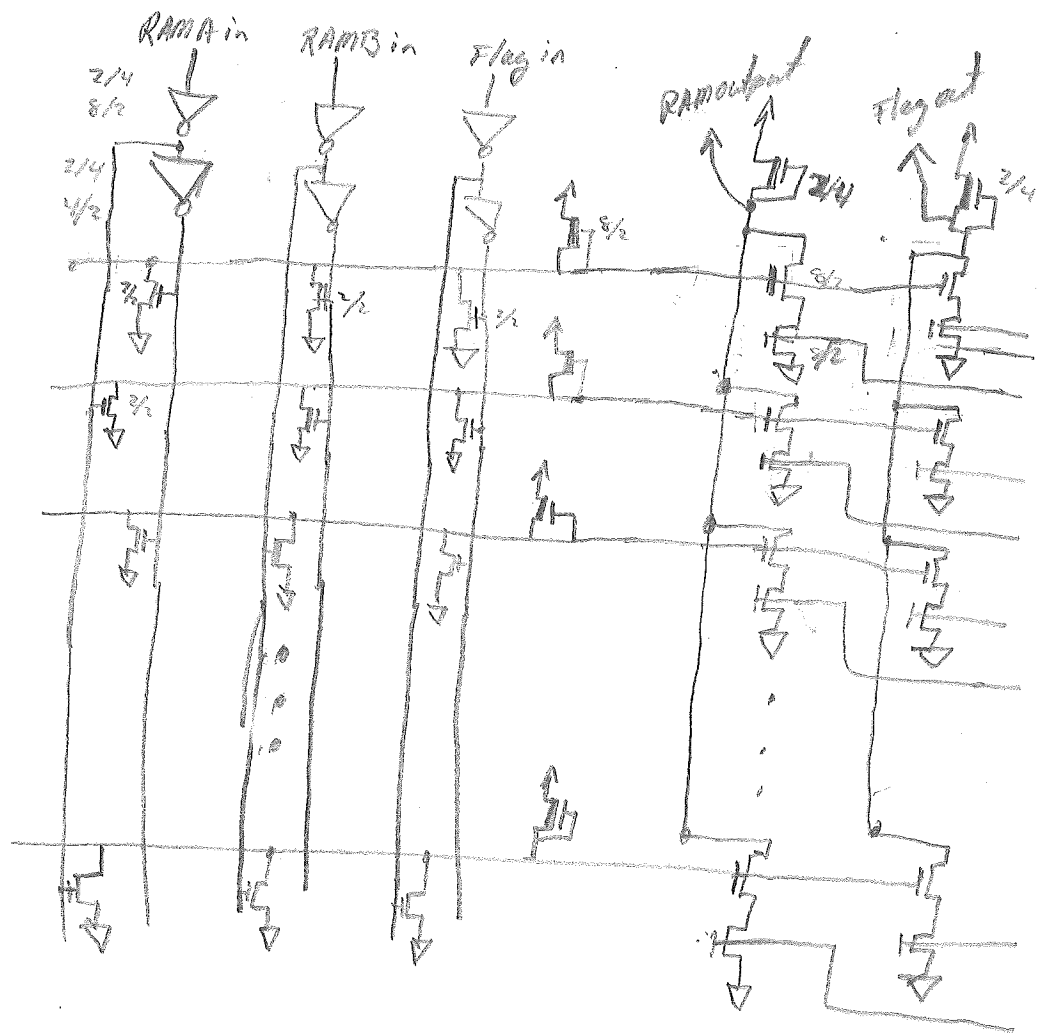 RAMA in
RAMB in
Flag in
RAMoutput
Flag out
2/4
8/2
2/4
4/2
2/4
2/4
8/2
2/2
2/2
2/2
8/2
8/2
2/2